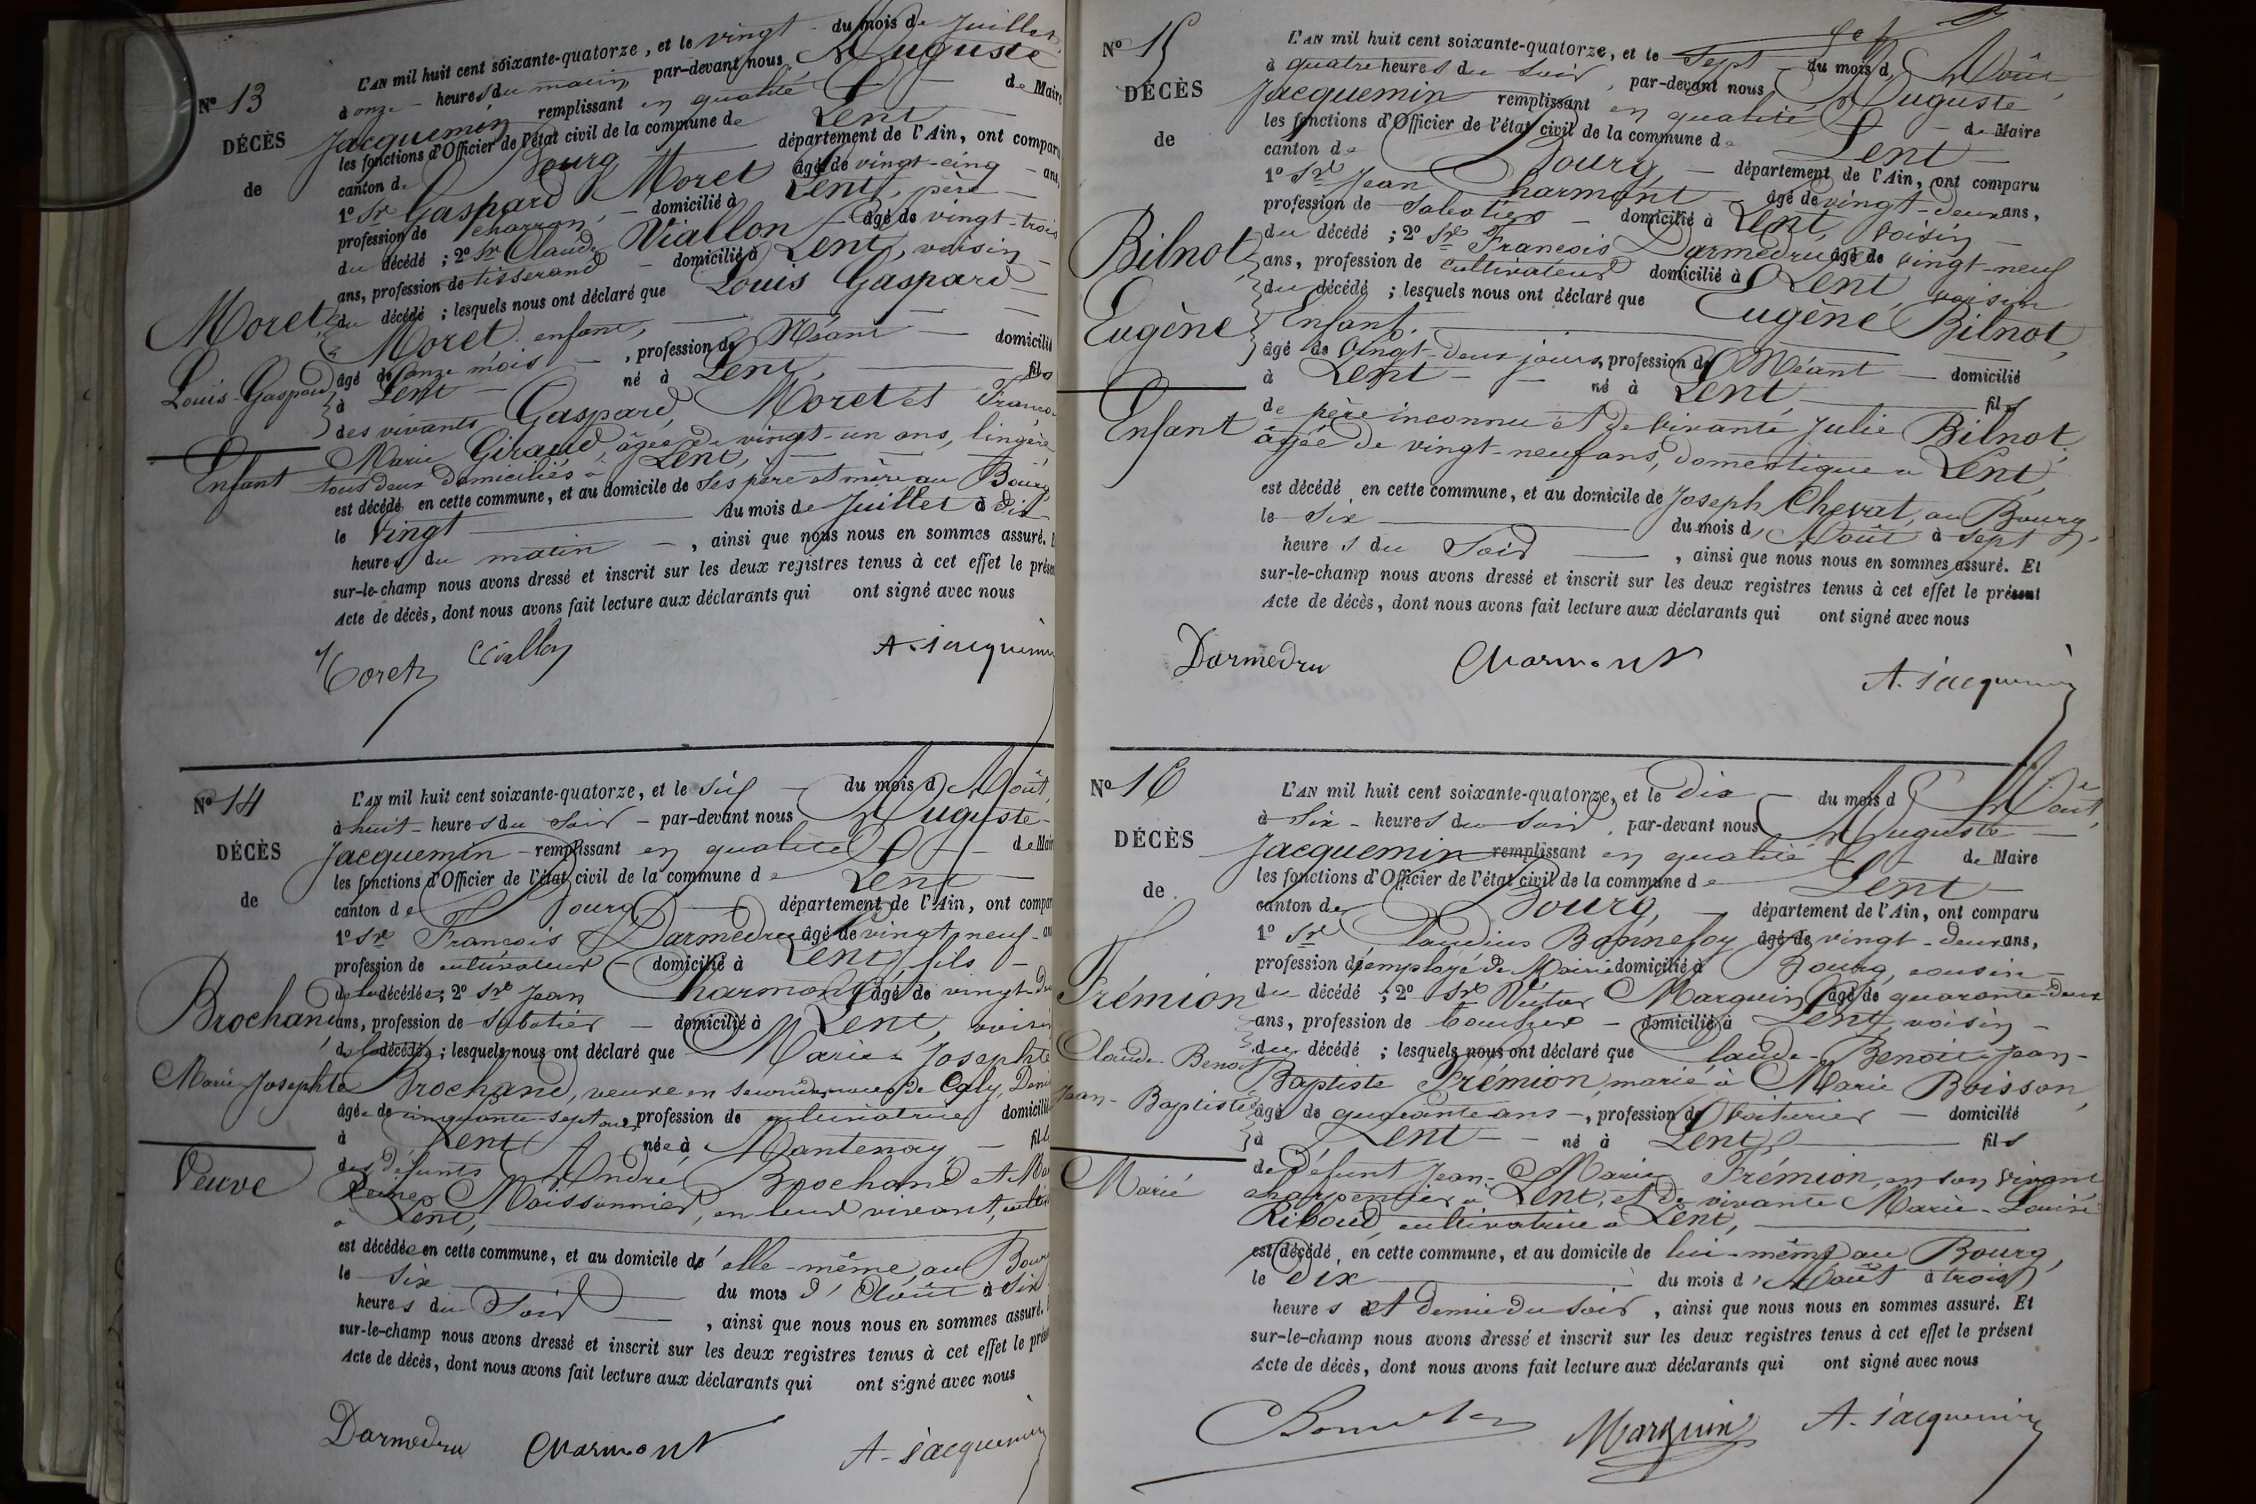 Nº 13
DÉCÈS
de
Moret
Louis Gaspard
Enfant
L'AN mil huit cent soixante-quatorze, et le vingt du mois de Juillet
à onze heures du matin par-devant nous Auguste
Jacquemin remplissant en qualité de Maire
les fonctions d'Officier de l'état civil de la commune de Lent
canton de Bourg département de l'Ain, ont comparu
1º Sr Gaspard Moret âgé de vingt-cinq ans,
profession de charron, domicilié à Lent, père
du décédé ; 2º Sr Claude Viallon âgé de vingt-trois
ans, profession de tisserand domicilié à Lent, voisin
du décédé ; lesquels nous ont déclaré que Louis Gaspard
Moret enfant,
âgé de onze mois, profession de Néant domicilié
à Lent né à Lent, fils
des vivants Gaspard Moret et
Marie Giraud, âgée de vingt-un ans, lingère
tous deux domiciliés à Lent,
est décédé en cette commune, et au domicile de ses père et mère au Bourg
le vingt du mois de Juillet à dix
heures du matin, ainsi que nous nous en sommes assuré.
sur-le-champ nous avons dressé et inscrit sur les deux registres tenus à cet effet le présent
Acte de décès, dont nous avons fait lecture aux déclarants qui ont signé avec nous
Moret Viallon A. Jacquemin
Nº 14
DÉCÈS
de
Brochand
Marie Josephte
Veuve
L'AN mil huit cent soixante-quatorze, et le six du mois d'Août,
à huit heures du soir par-devant nous Auguste
Jacquemin remplissant en qualité de Maire
les fonctions d'Officier de l'état civil de la commune de Lent
canton de Bourg département de l'Ain, ont comparu
1º Sr François Darmedru âgé de vingt neuf ans
profession de cultivateur domicilié à Lent, fils
de la décédée ; 2º Sr Jean Charmont âgé de vingt-deux
ans, profession de sabotier domicilié à Lent, voisin
de la décédée ; lesquels nous ont déclaré que Marie Josephte
Brochand, veuve en secondes noces de Caly, Denis
âgée de cinquante-sept ans, profession de cultivatrice domiciliée
à Lent née à Mantenay fille
des défunts André Brochand et
Reine Moissonnier, en leur vivant,
à Lent,
est décédée en cette commune, et au domicile d'elle-même, au Bourg
le six du mois d'Août à six
heures du soir, ainsi que nous nous en sommes assuré.
sur-le-champ nous avons dressé et inscrit sur les deux registres tenus à cet effet le présent
Acte de décès, dont nous avons fait lecture aux déclarants qui ont signé avec nous
Darmedru Charmont A. Jacquemin
Nº 15
DÉCÈS
de
Bilnot
Eugène
Enfant
L'AN mil huit cent soixante-quatorze, et le sept du mois d'Août,
à quatre heures du soir, par-devant nous Auguste
Jacquemin remplissant en qualité de Maire
les fonctions d'Officier de l'état civil de la commune de Lent
canton de Bourg, département de l'Ain, ont comparu
1º Sr Jean Charmont âgé de vingt-deux ans,
profession de sabotier domicilié à Lent, voisin
du décédé ; 2º Sr François Darmedru âgé de vingt-neuf
ans, profession de cultivateur domicilié à Lent, voisin
du décédé ; lesquels nous ont déclaré que Eugène Bilnot,
Enfant.
âgé de vingt-deux jours, profession de Néant domicilié
à Lent né à Lent fils
de père inconnu et de vivante Julie Bilnot,
âgée de vingt-neuf ans, domestique à Lent,
est décédé en cette commune, et au domicile de Joseph Chevat, au Bourg,
le six du mois d'Août à sept
heures du soir, ainsi que nous nous en sommes assuré. Et
sur-le-champ nous avons dressé et inscrit sur les deux registres tenus à cet effet le présent
Acte de décès, dont nous avons fait lecture aux déclarants qui ont signé avec nous
Darmedru Charmont A. Jacquemin
Nº 16
DÉCÈS
de
Frémion
Claude Benoit
Jean-Baptiste
Marié
L'AN mil huit cent soixante-quatorze, et le dix du mois d'Août,
à six heures du soir, par-devant nous Auguste
Jacquemin remplissant en qualité de Maire
les fonctions d'Officier de l'état civil de la commune de Lent
canton de Bourg, département de l'Ain, ont comparu
1º Sr Claudius Bonnefoy âgé de vingt-deux ans,
profession d'employé de Mairie domicilié à Bourg, cousin
du décédé ; 2º Sr Victor Marquin âgé de quarante-deux
ans, profession de domicilié à Lent, voisin
du décédé ; lesquels nous ont déclaré que Claude-Benoit-Jean-
Baptiste Frémion, marié à Marie Boisson,
âgé de quarante ans, profession de Voiturier domicilié
à Lent né à Lent fils
de défunt Jean-Marie Frémion, en son vivant
charpentier à Lent, et de vivante Marie-Louise
Riboud cultivatrice à Lent,
est décédé en cette commune, et au domicile de lui-même au Bourg,
le dix du mois d'Août à trois
heures et demie du soir, ainsi que nous nous en sommes assuré. Et
sur-le-champ nous avons dressé et inscrit sur les deux registres tenus à cet effet le présent
Acte de décès, dont nous avons fait lecture aux déclarants qui ont signé avec nous
Marquin A. Jacquemin